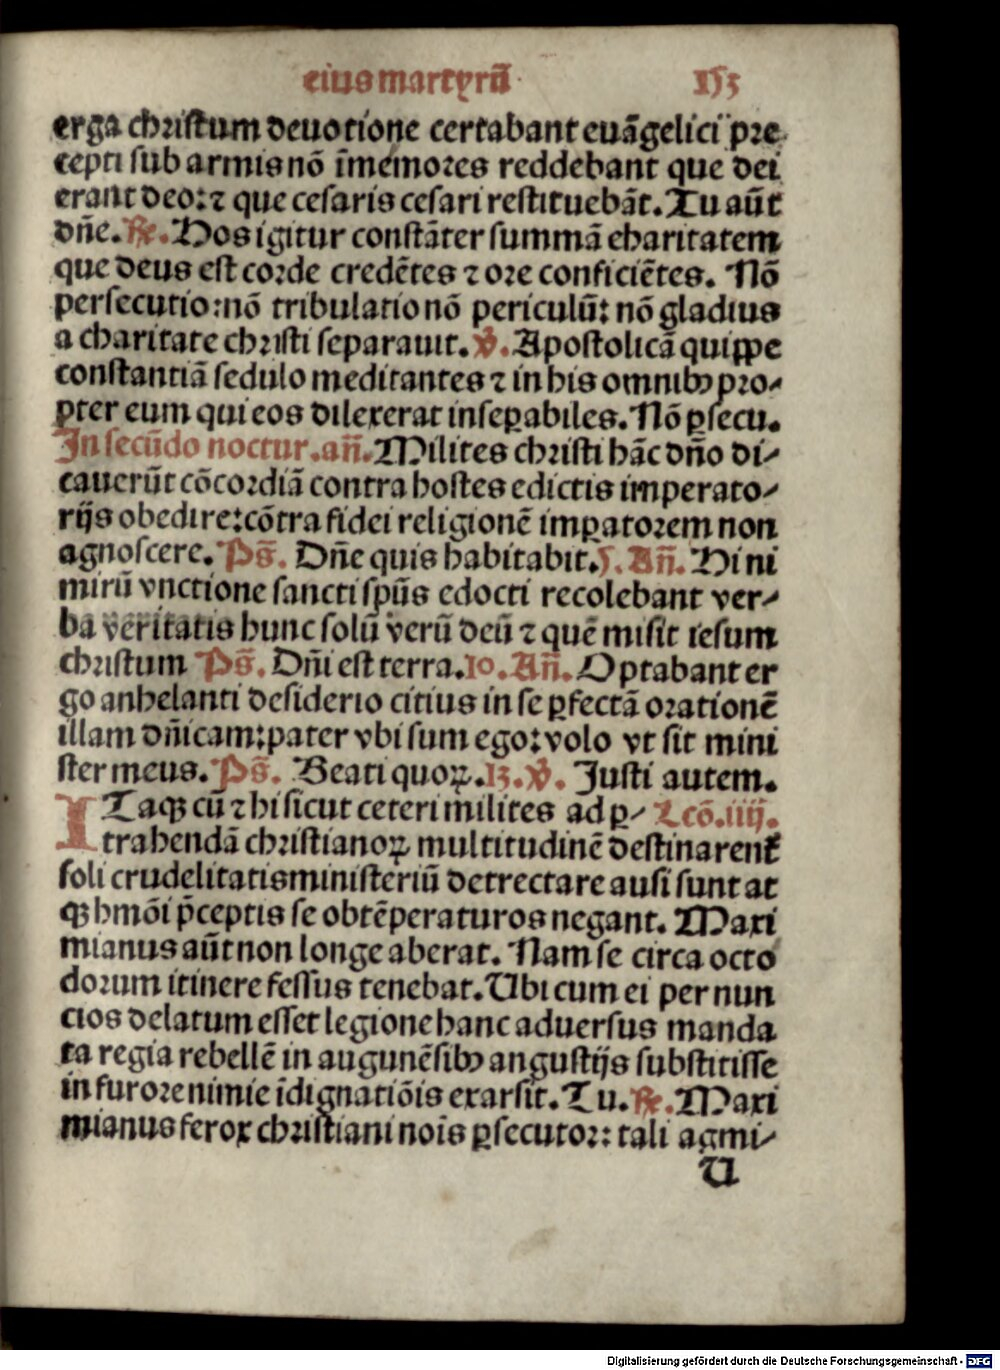 eius martyrū 153
erga christum deuotione certabant euāgelici pre
cepti sub armis nō īmemores reddebant que dei
erant deo: ⁊ que cesaris cesari restituebāt. Tu aūt
dn̄e. ℞. Hos igitur constāter summā charitatem
que deus est corde credētes ⁊ ore conficiētes. Nō
persecutio: nō tribulatio nō periculū: nō gladius
a charitate christi separauit. ℣. Apostolicā quippe
constantiā sedulo meditantes ⁊ in his omnibꝫ pro⸗
pter eum qui eos dilexerat insep̱abiles. Nō ꝑsecu.
In secūdo noctur. an̄. Milites christi hāc dn̄o di⸗
cauerūt cōcordiā contra hostes edictis imperato⸗
rijs obedire: cōtra fidei religionē imꝑatorem non
agnoscere. Ps̄. Dn̄e quis habitabit. 5. An̄. Hi ni
mirū vnctione sancti spūs edocti recolebant ver⸗
ba veritatis hunc solū verū deū ⁊ quē misit iesum
christum Ps̄. Dn̄i est terra. 10. An̄. Optabant er
go anhelanti desiderio citius in se ꝑfectā orationē
illam dn̄icam: pater vbi sum ego: volo vt sit mini
ster meus. Ps̄. Beati quoꝝ. 13. ℣. Justi autem.
ITaqꝫ cū ⁊ hi sicut ceteri milites ad ꝑ⸗ Lcō. iiij.
trahendā christianoꝝ multitudinē destinarent᷑
soli crudelitatis ministeriū detrectare ausi sunt at
qꝫ hmōi p̄ceptis se obtēperaturos negant. Maxi
mianus aūt non longe aberat. Nam se circa octo
dorum itinere fessus tenebat. Ubi cum ei per nun
cios delatum esset legione hanc aduersus manda
ta regia rebellē in augunēsibꝫ angustijs substitisse
in furore nimie īdignatiōis exarsit. Tu. ℞. Maxi
mianus ferox christiani noīs ꝑsecutor: tali agmi⸗
U
Digitalisierung gefördert durch die Deutsche Forschungsgemeinschaft - DFG